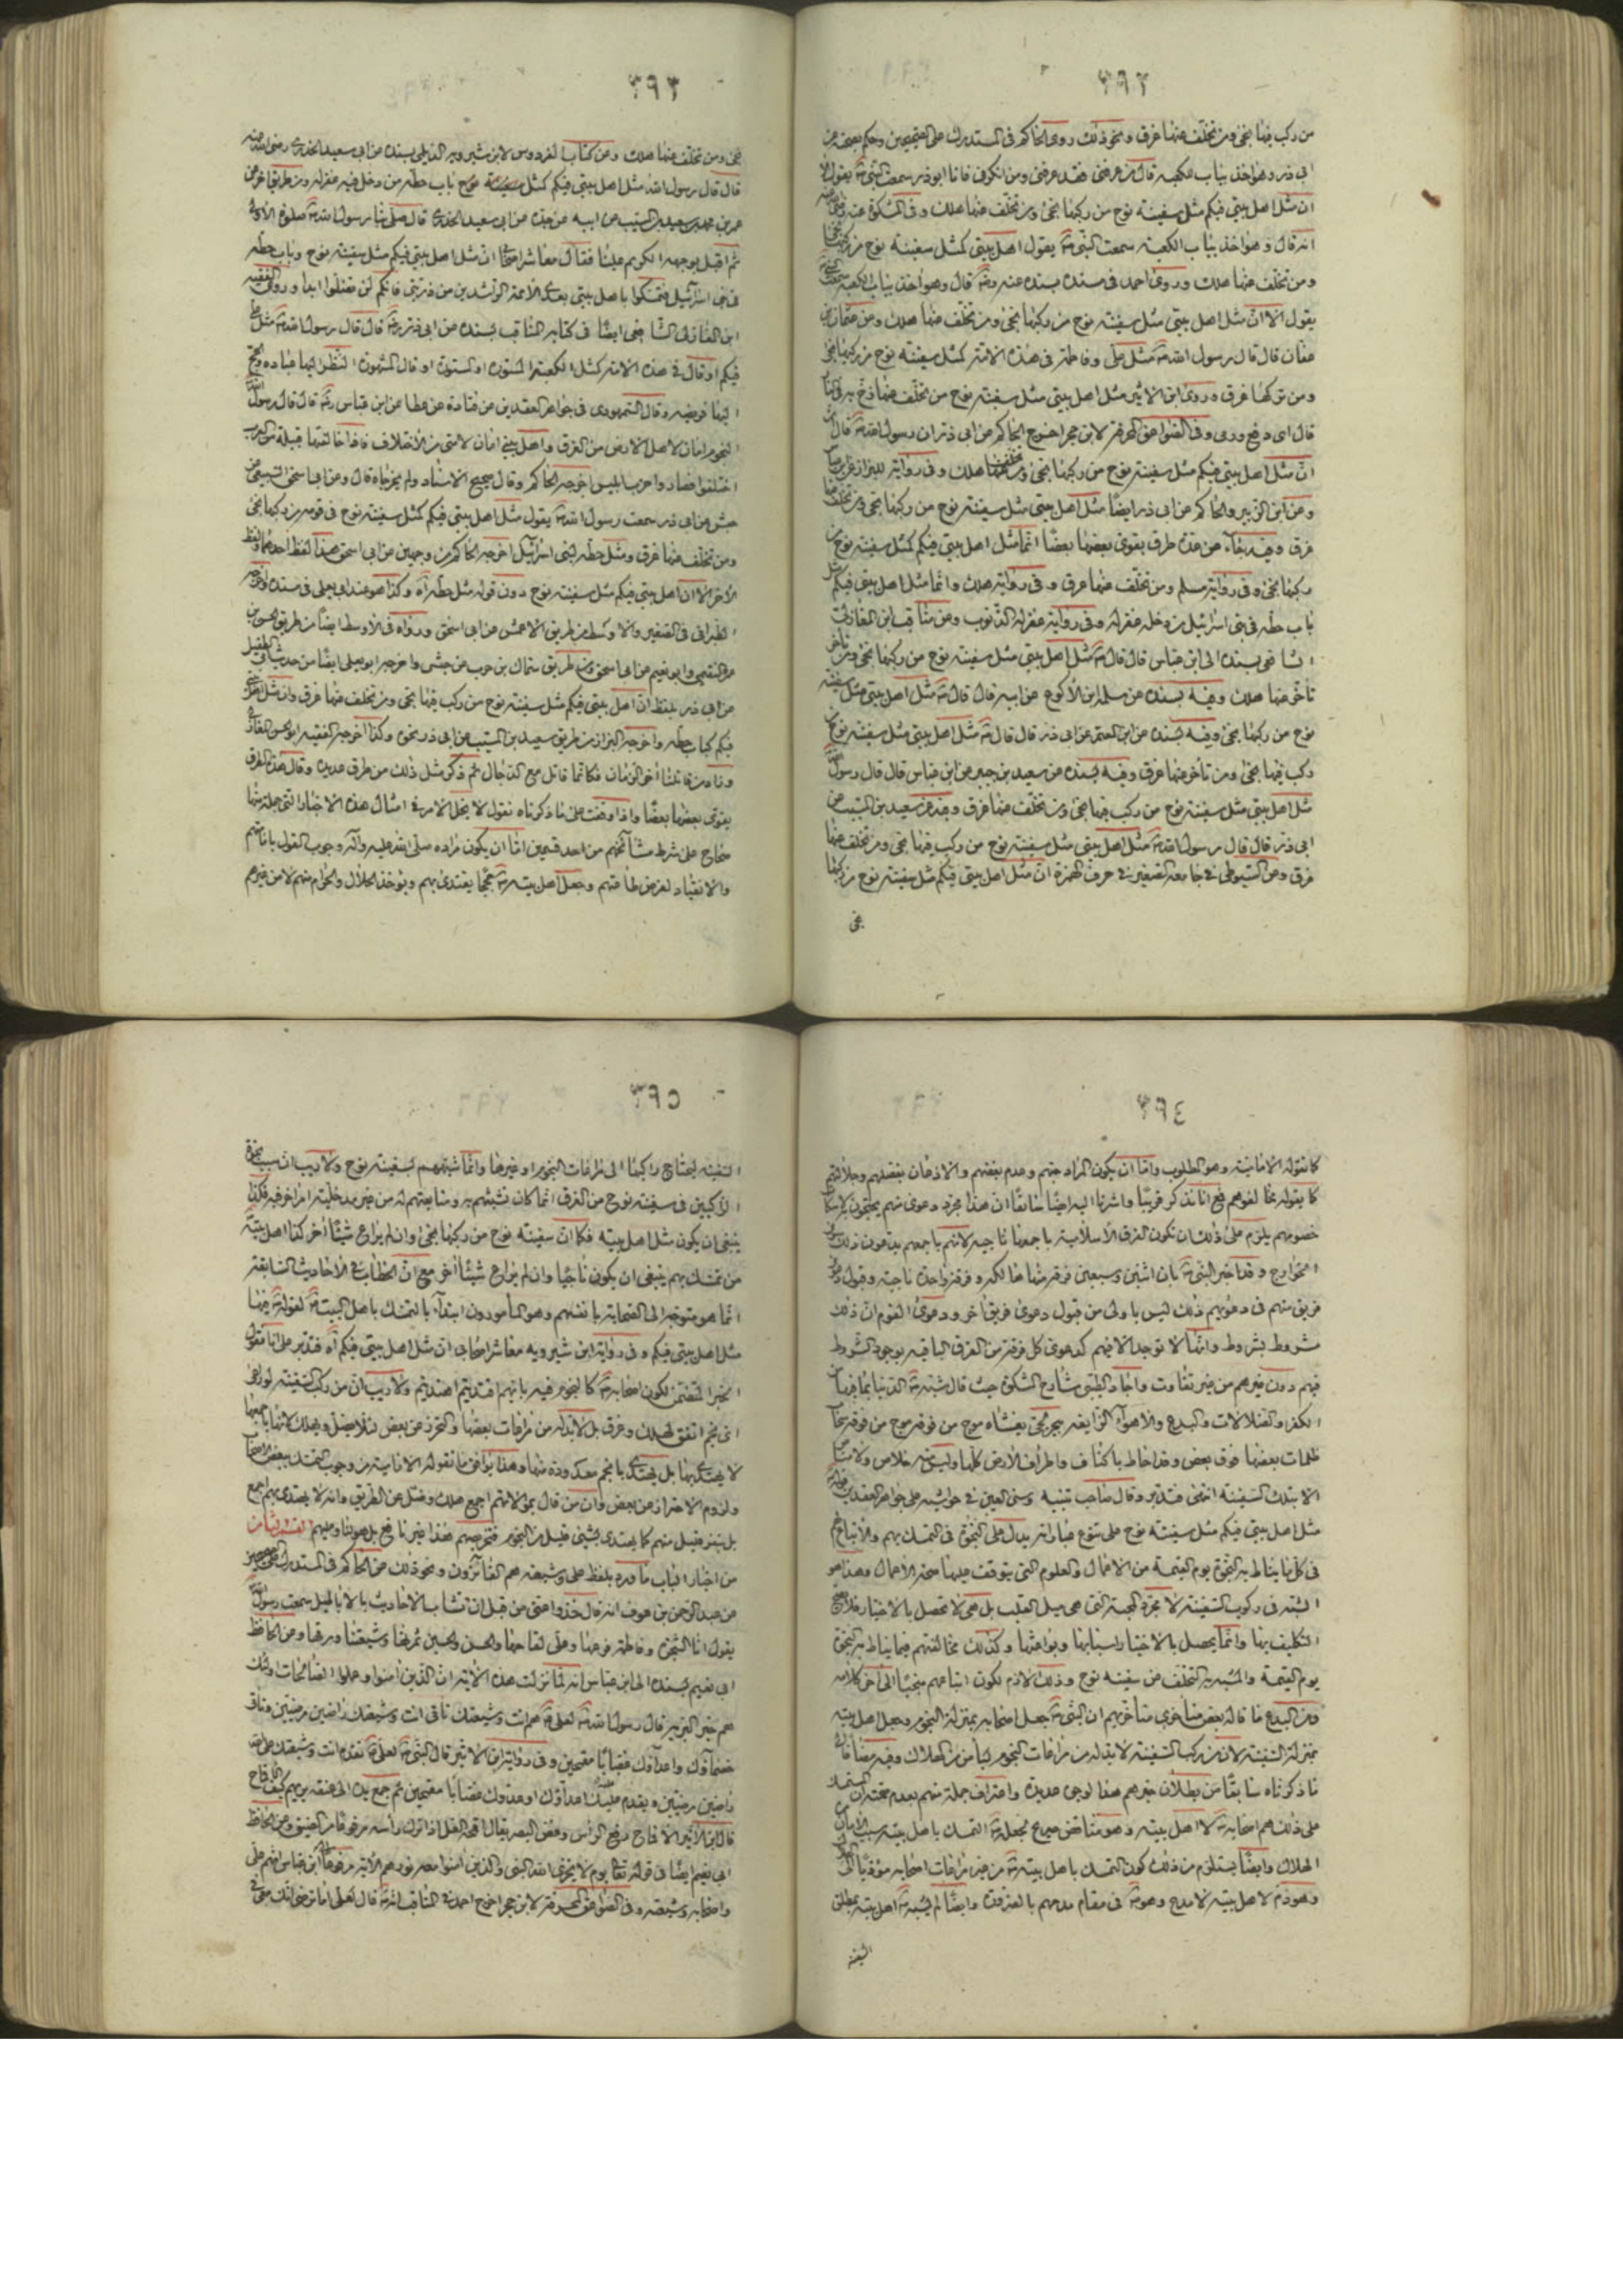 ٣٩٢
من ركب فيها نجى ومن تخلّف عنها غرق ونحو ذلك روى الحاكم فى المستدرك على الصحيحين وحكم بصحته عن
ابى ذر وهو اخذ بباب الكعبه قال من عرفنى فقد عرفنى ومن انكرنى فانا ابوذر سمعت النبى يقول الا
ان مثل اهل بيتى فيكم مثل سفينة نوح من ركبها نجى ومن تخلف عنها هلك وفى المشكوة عنه
انه قال وهو اخذ بباب الكعبة سمعت النبى يقول اهل بيتى كمثل سفينة نوح من ركبها نجا
ومن تخلف عنها هلك وروى احمد فى مسنده بسنده عنه قال وهو اخذ بباب الكعبة سمعت
يقول الا ان مثل اهل بيتى مثل سفينة نوح من ركبها نجى ومن تخلف عنها هلك وعن عثمان بن
عفان قال قال رسول الله مثل على وفاطمة فى هذه الامة كمثل سفينة نوح من ركبها نجى
ومن تركها غرق وروى ابن الاثير مثل اهل بيتى مثل سفينة نوح من تخلف عنها زخ به فى النار
قال اى دفع ورمى وفى الصواعق المحرقة لابن حجر اخرج الحاكم عن ابى ذر ان رسول الله قال
انّ مثل اهل بيتى فيكم مثل سفينة نوح من ركبها نجى ومن تخلف عنها هلك وفى رواية للبزاز عن ابن عباس
وعن ابن الزبير والحاكم عن ابى ذر ايضاً مثل اهل بيتى مثل سفينة نوح من ركبها نجى ومن تخلف عنها
غرق وفيه جاء من عدة طرق يقوى بعضها بعضاً انما مثل اهل بيتى فيكم كمثل سفينة نوح من
ركبها نجى وفى رواية مسلم ومن تخلف عنها غرق وفى رواية هلك وانما مثل اهل بيتى فيكم مثل
باب حطة فى بنى اسرائيل من دخله غفر له وفى رواية غفر له الذنوب وعن مناقب ابن المغازلى
الشافعى بسنده الى ابن عباس قال قال مثل اهل بيتى مثل سفينة نوح من ركبها نجى ومن تأخر
تأخر عنها هلك وفيه بسنده عن سلمة ابن الاكوع عن ابيه قال قال مثل اهل بيتى مثل سفينة
نوح من ركبها نجى وفيه بسنده عن ابن المعتمر عن ابى ذر قال قال مثل اهل بيتى مثل سفينة نوح
ركب فيها نجى ومن تأخر عنها غرق وفيه بسنده عن سعيد بن جبير عن ابن عباس قال قال رسول الله
مثل اهل بيتى مثل سفينة نوح من ركب فيها نجى ومن تخلف عنها غرق وفيه عن سعيد بن المسيب عن
ابى ذر قال قال رسول الله مثل اهل بيتى مثل سفينة نوح من ركب فيها نجى ومن تخلف عنها
غرق وعن السيوطى فى جامعه الصغير فى حرف الهمزة ان مثل اهل بيتى فيكم مثل سفينة نوح من ركبها
نجى
٣٩٣
نجى ومن تخلف عنها هلك وعن كتاب الفردوس لابن شيرويه الديلمى بسنده عن ابى سعيد الخدرى رضى الله عنه
قال قال رسول الله مثل اهل بيتى فيكم كمثل سفينة نوح باب حطة من دخل فيه غفر له
عن ابيه عن جده عن ابى سعيد الخدرى قال صلى بنا رسول الله صلوة الاولى
ثم اقبل بوجهه الكريم علينا فقال معاشر اصحابى انّ مثل اهل بيتى فيكم مثل سفينة نوح وباب حطة
فى بنى اسرائيل فتمسكوا باهل بيتى بعدى الائمة الراشدين من ذريتى فانكم لن تضلوا ابدا وروى الفقيه
ابن المغازلى الشافعى ايضاً فى كتابه المناقب بسنده عن ابى ذر قال قال رسول الله مثل على
فيكم او قال فى هذه الامة كمثل الكعبة المستورة او المشهورة النظر اليها عبادة والحج
اليها فريضة وقال السمهودى فى جواهر العقدين عن قتادة عن عطا عن ابن عباس قال قال رسول الله
النجوم امان لاهل الارض من الغرق واهل بيتى امان لامتى من الاختلاف فاذا خالفتها قبيلة من العرب
اختلفوا فصاروا حزب ابليس اخرجه الحاكم وقال صحيح الاسناد ولم يخرجاه قال وعن ابى اسحق السبيعى عن
حنش عن ابى ذر سمعت رسول الله يقول مثل اهل بيتى فيكم كمثل سفينة نوح فى قومه من ركبها نجى
ومن تخلف عنها غرق ومثل حطة لبنى اسرائيل اخرجه الحاكم من وجهين عن ابى اسحق هذا لفظ احدهما ولفظ
الاخر الا ان اهل بيتى فيكم مثل سفينة نوح دون قوله مثل حطة اه وكذا هو عند ابى يعلى فى مسنده اخرجه
الطبرانى فى الصغير والاوسط من طريق الاعمش عن ابى اسحق ورواه فى الاوسط ايضاً من طريق الحسن بن
عمرو الفقيمى وابو نعيم عن ابى اسحق ومن طريق سماك بن حرب عن حنش واخرجه ابو يعلى ايضاً من حديث ابى الطفيل
عن ابى ذر بلفظ ان اهل بيتى فيكم مثل سفينة نوح من ركب فيها نجى ومن تخلف عنها غرق وان مثل اهل بيتى
فيكم كباب حطة واخرجه البزاز من طريق سعيد بن المسيب عن ابى ذر نحوه وكذا اخرجه الفقيه ابو الحسن المغازلى
وزاد ومن قاتلنا اخر الزمان فكانما قاتل مع الدجال ثم ذكر مثل ذلك من طرق عديدة وقال هذه الطرق
يقوى بعضها بعضاً واذا وقفت على ما ذكرناه نقول لا يخلو الامر فى امثال هذه الاخبار التى جملة منها
صحاح على شرط مشائخهم من احد قسمين اما ان يكون مراده صلى الله عليه وآله وجوب القول بامامتهم
والانقياد لفرض طاعتهم وجعل اهل بيته حججا يقتدى بهم ويؤخذ الحلال والحرام منهم لا من غيرهم
٣٩٤
كما تقوله الامامية وهو المطلوب واما ان يكون المراد حبهم وعدم بغضهم والاذعان بفضلهم وجلالتهم
كما يقوله مخالفوهم فمع انا نذكر قريبا واشرنا اليه ايضاً سابقاً ان هذا مجرد دعوى منهم
خصومهم يلزم على ذلك ان تكون الفرق الاسلامية باجمعها ناجية لانهم باجمعهم يدعون ذلك سوى
الخوارج وقد اخبر النبى بان اثنين وسبعين فرقة منها هالكة وفرقة واحدة ناجية وقبول
فريق منهم فى دعويهم ذلك ليس باولى من قبول دعوى فريق اخر ودعوى القوم ان ذلك
مشروط بشروط وانها لا توجد الا فيهم كدعوى كل فرقة من الفرق الباقية بوجود الشروط
فيهم دون غيرهم من غير تفاوت واجاد الطيبى شارح المشكوة حيث قال شبه الدنيا بما فيها من
الكفر والضلالات والبدع والاهواء الزايغة ببحر لجى يغشاه موج من فوقه موج من فوقه سحاب
ظلمات بعضها فوق بعض وقد احاط باكناف واطراف الارض كلها وليس منه خلاص ولا مناص
الا بتلك السفينة انتهى فتدبر وقال صاحب تنبيه وسنى العين فى حواشيه على جواهر العقدين
مثل اهل بيتى فيكم مثل سفينة نوح على تنوع عباراته يدل على النجوة فى التمسك بهم والاتباع
فى كل ما يناط به النجوة يوم القيمة من الاعمال والعلوم التى يتوقف عليها صحة الاعمال وهذا هو
الشبه فى ركوب السفينة لا مجرد المحبة التى هى ميل القلب بل هى لا تحصل بالاختيار فلا يصح
التكليف بها وانما يحصل بالاختيار اسبابها وبواعثها وكذلك مخالفتهم فيما يناط به النجوة
يوم القيمة والمشبه به التخلف عن سفينة نوح وذلك لازم لكون اتباعهم منجيا الى اخر كلامه
ومن البدع ما قاله بعض متأخرى متأخريهم ان النبى جعل اصحابه بمنزلة النجوم وجعل اهل بيته
بمنزلة السفينة لان من ركب السفينة لا بد له من مراعات النجوم ليأمن من الهلاك وفيه مضافا
ما ذكرناه سابقاً من بطلان خبرهم هذا لوجوه عديدة واعتراف جملة منهم بعدم صحته
على ذلك هم اصحابه لا اهل بيته وهو مناقض صريح لجعله التمسك باهل بيته سبب الامان من
الهلاك وايضاً يستلزم من ذلك كون التمسك باهل بيته من غير مراعات اصحابه مؤديا الى
وهو ذم لاهل بيته لا مدح وهو فى مقام مدحهم بالضرورة وايضاً لم يشبه اهل بيته بمطلق
السفينة
٣٩٥
السفينة ليحتاج راكبها الى مراعات النجوم او غيرها وانما شبههم بسفينة نوح ولا ريب ان سبب نجوة
الراكبين فى سفينة نوح من الغرق انما كان تشبثهم به ومتابعتهم له من غير مدخلية امر اخر فيه فكذا
ينبغى ان يكون مثل اهل بيته فكما انّ سفينة نوح من ركبها نجى وان لم يراع شيئاً اخر كذا اهل بيته
من تمسك بهم ينبغى ان يكون ناجيا وان لم يراع شيئا اخر مع انّ الخطاب فى الاحاديث السابقة
انما هو متوجه الى الصحابة بانفسهم وهو المأمورون ابتداء بالتمسك باهل البيت لقوله فيها
مثل اهل بيتى فيكم وفى رواية ابن شيرويه معاشر اصحابى ان مثل اهل بيتى فيكم اه فتدبر على انا نقول
الخبر المتضمن لكون اصحابه كالنجوم فيه بايهم اقتديتم اهتديتم ولا ريب انّ من ركب السفينة لو راعى
اى نجم اتفق لهلك وغرق بل لابد له من مراعات بعضها والتحرز عن بعض لئلا يضل ويهلك
لا يهتدى بها بل يهتدى بانجم معدودة منها وهذا يوافق ما تقوله الامامية من وجوب التمسك ببعض الاصحاب
ولزوم الاحتراز عن بعض وان من قال بموالاتهم اجمع هلك وضل عن الطريق وانه لا يهتدى بهم اجمع
بل بنفر قليل منهم كما يهتدى بشىء قليل من النجوم فتوجيههم هذا غير نافع بل هو لنا وعليهم القسم الثامن
من اخبار الباب ما ورد بلفظ على وشيعته هم الفائزون ونحو ذلك عن الحاكم فى المستدرك على الصحيحين
عن عبد الرحمن بن عوف انه قال خذوا عنى من قبل ان تشاب الاحاديث بالاباطيل سمعت رسول الله
يقول انا الشجرة وفاطمة فرعها وعلى لقاحها والحسن والحسين ثمرتها وشيعتنا ورقها وعن الحافظ
ابى نعيم بسنده الى ابن عباس انه لما نزلت هذه الاية ان الذين امنوا وعملوا الصالحات اولئك
هم خير البرية قال رسول الله لعلى هم انت وشيعتك تأتى انت وشيعتك راضين مرضيين ويأتى
خصماؤك واعداؤك غضابا مقمحين وفى رواية ابن الاثير قال النبى لعلى تقدم انت وشيعتك على الله
راضين مرضيين ويقدم عليك اعداؤك او عدوك غضابا مقمحين ثم جمع يده الى عنقه يريهم كيف الاقماح
قال ابن الاثير الاقماح رفع الرأس وغض البصر يقال اقمحه الغل اذا ترك رأسه مرفوعاً من الضيق وعن الحافظ
ابى نعيم ايضاً فى قوله تعالى يوم لا يخزى الله النبى والذين امنوا معه نورهم الاية مرفوعا ابن عباس انهم على
واصحابه وشيعته وفى الصواعق المحرقة لابن حجر اخرج احمد فى المناقب انه قال لعلى اما ترضى انك معى فى